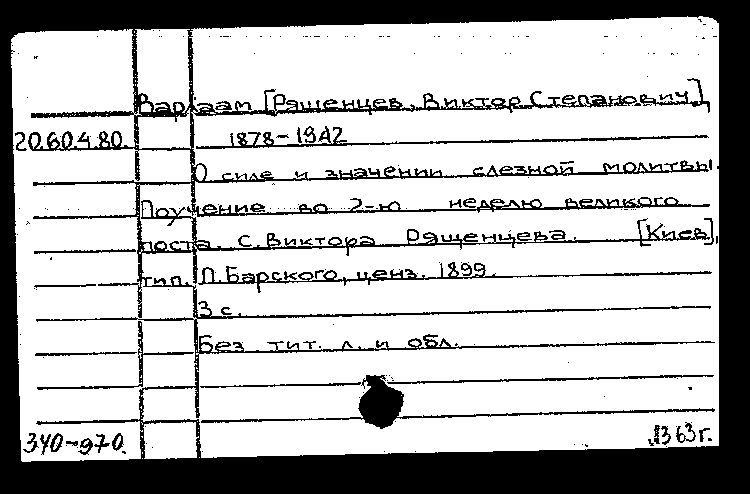 Варлаам [Ряшенцев, Виктор Степанович],
20.60.4.80. 1878-1942
О силе и значении слезной молитвы.
Поучение во 2-ю неделю великого
поста. С. Виктора Рященцева. [Киев],
тип. Л. Барского, ценз. 1899.
3 с.
Без тит. л. и обл.
340-970.